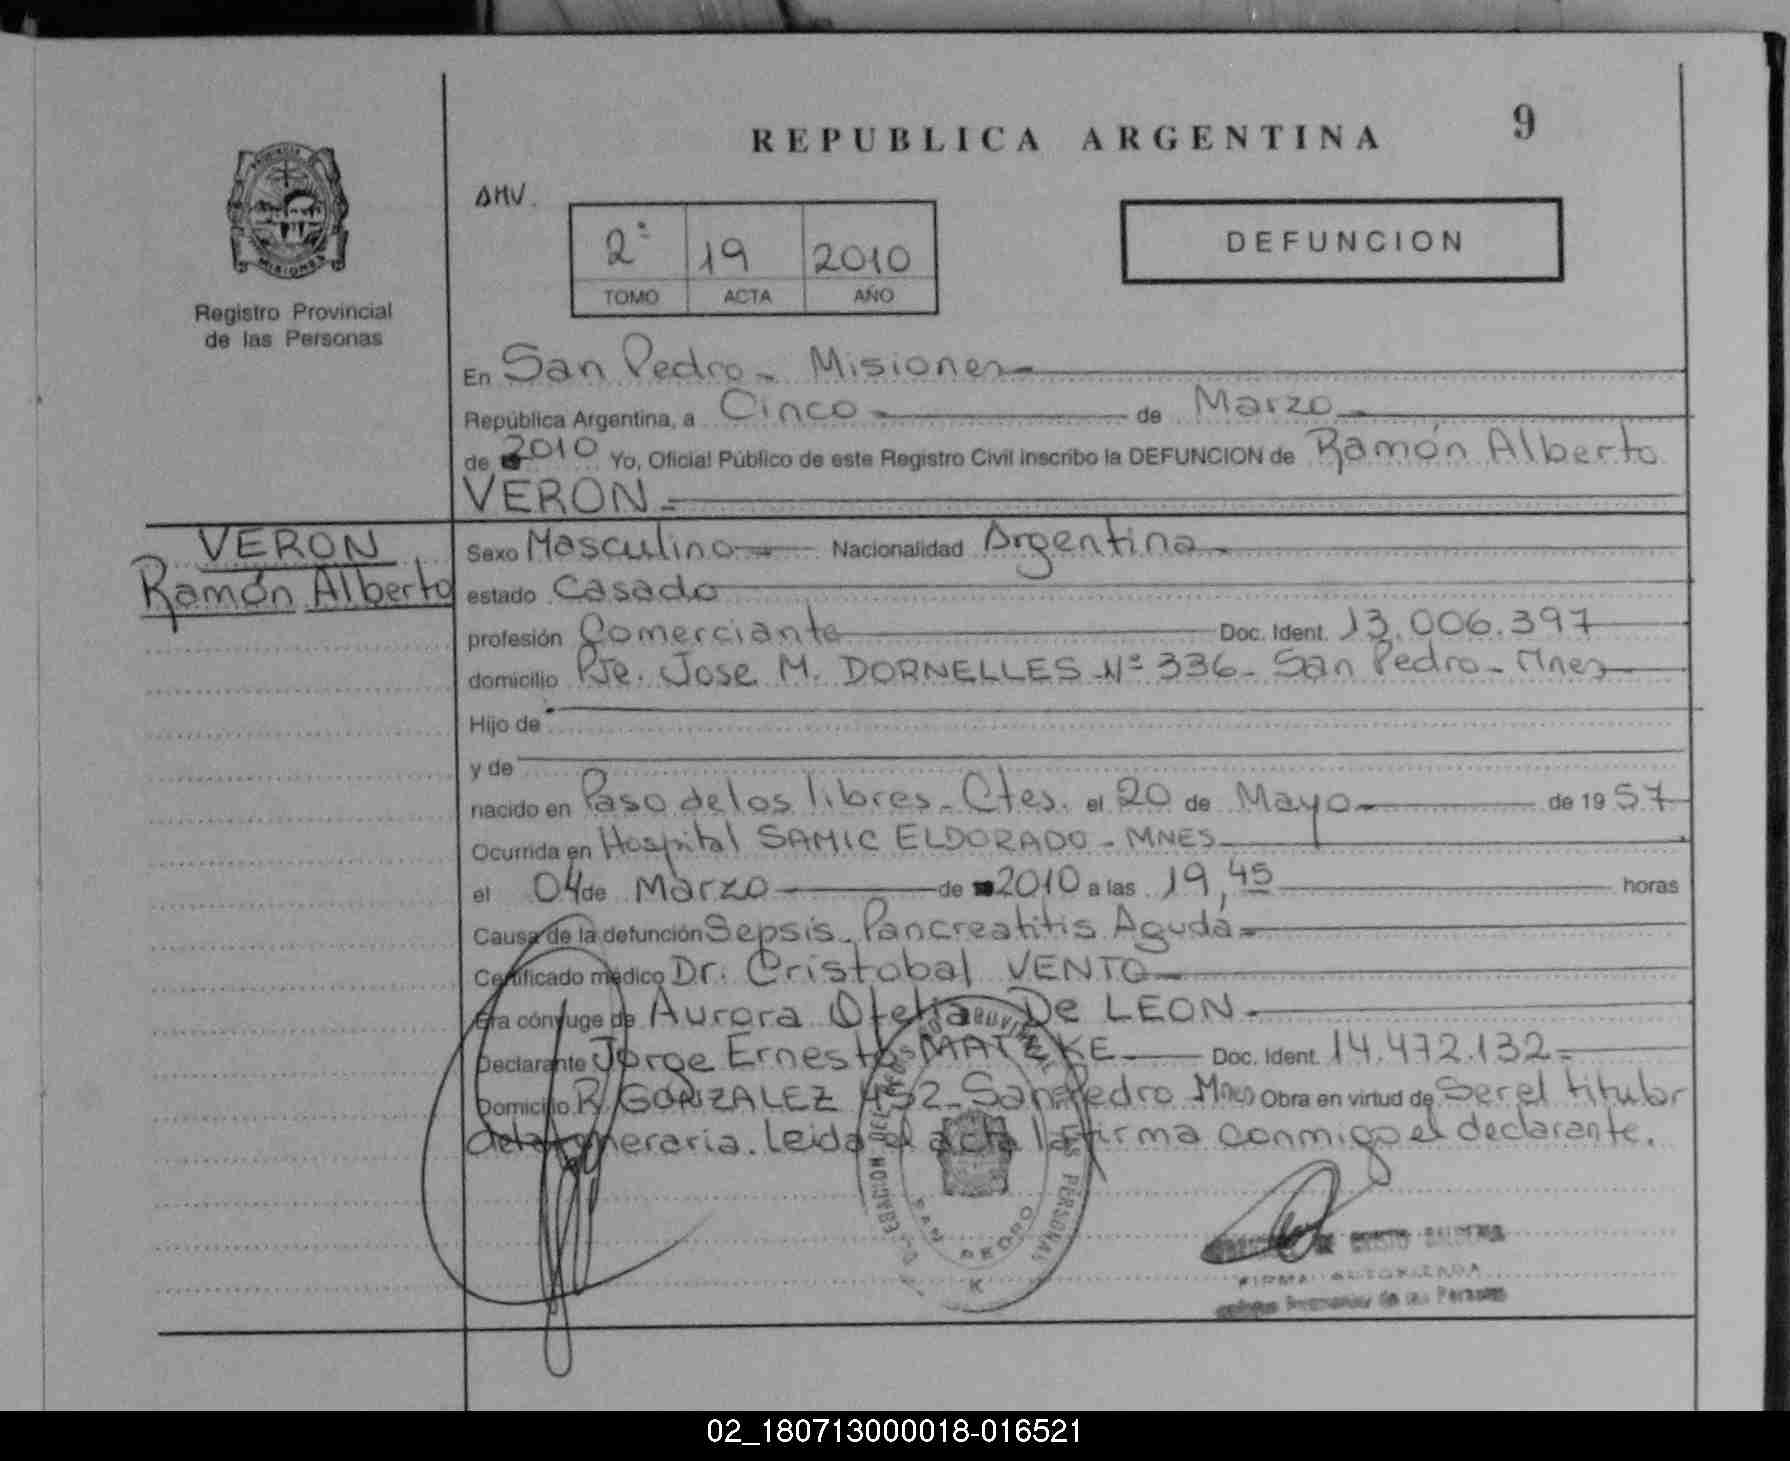 REPUBLICA ARGENTINA 9
PROVINCIA
MISIONES
Registro Provincial
de las Personas
AMV.
2º 19 2010
TOMO ACTA AÑO
DEFUNCION
En San Pedro - Misiones
República Argentina, a Cinco de Marzo
de 2010 Yo, Oficial Público de este Registro Civil inscribo la DEFUNCION de Ramón Alberto
VERON
VERON
Ramón Alberto
Sexo Masculino Nacionalidad Argentina
estado Casado
profesión Comerciante Doc. Ident. 13.006.397
domicilio Pje. Jose M. DORNELLES Nº 336 - San Pedro - Mnes
Hijo de
y de
nacido en Paso de los libres - Ctes. el 20 de Mayo de 1957
Ocurrida en Hospital SAMIC ELDORADO - MNES
el 04 de Marzo de 2010 a las 19,45 horas
Causa de la defunción Sepsis - Pancreatitis Aguda
Certificado médico Dr. Cristobal VENTO
Era cónyuge de Aurora Ofelia De LEON
Declarante Jorge Ernesto MATZKE Doc. Ident. 14.472.132
Domicilio R. GONZALEZ 452 - San Pedro Mnes Obra en virtud de Ser el titular
de la funeraria. Leida el acta la firma conmigo el declarante.
PERSONAS
SAN PEDRO
K
FIRMA AUTORIZADA
de las Personas
02_180713000018-016521